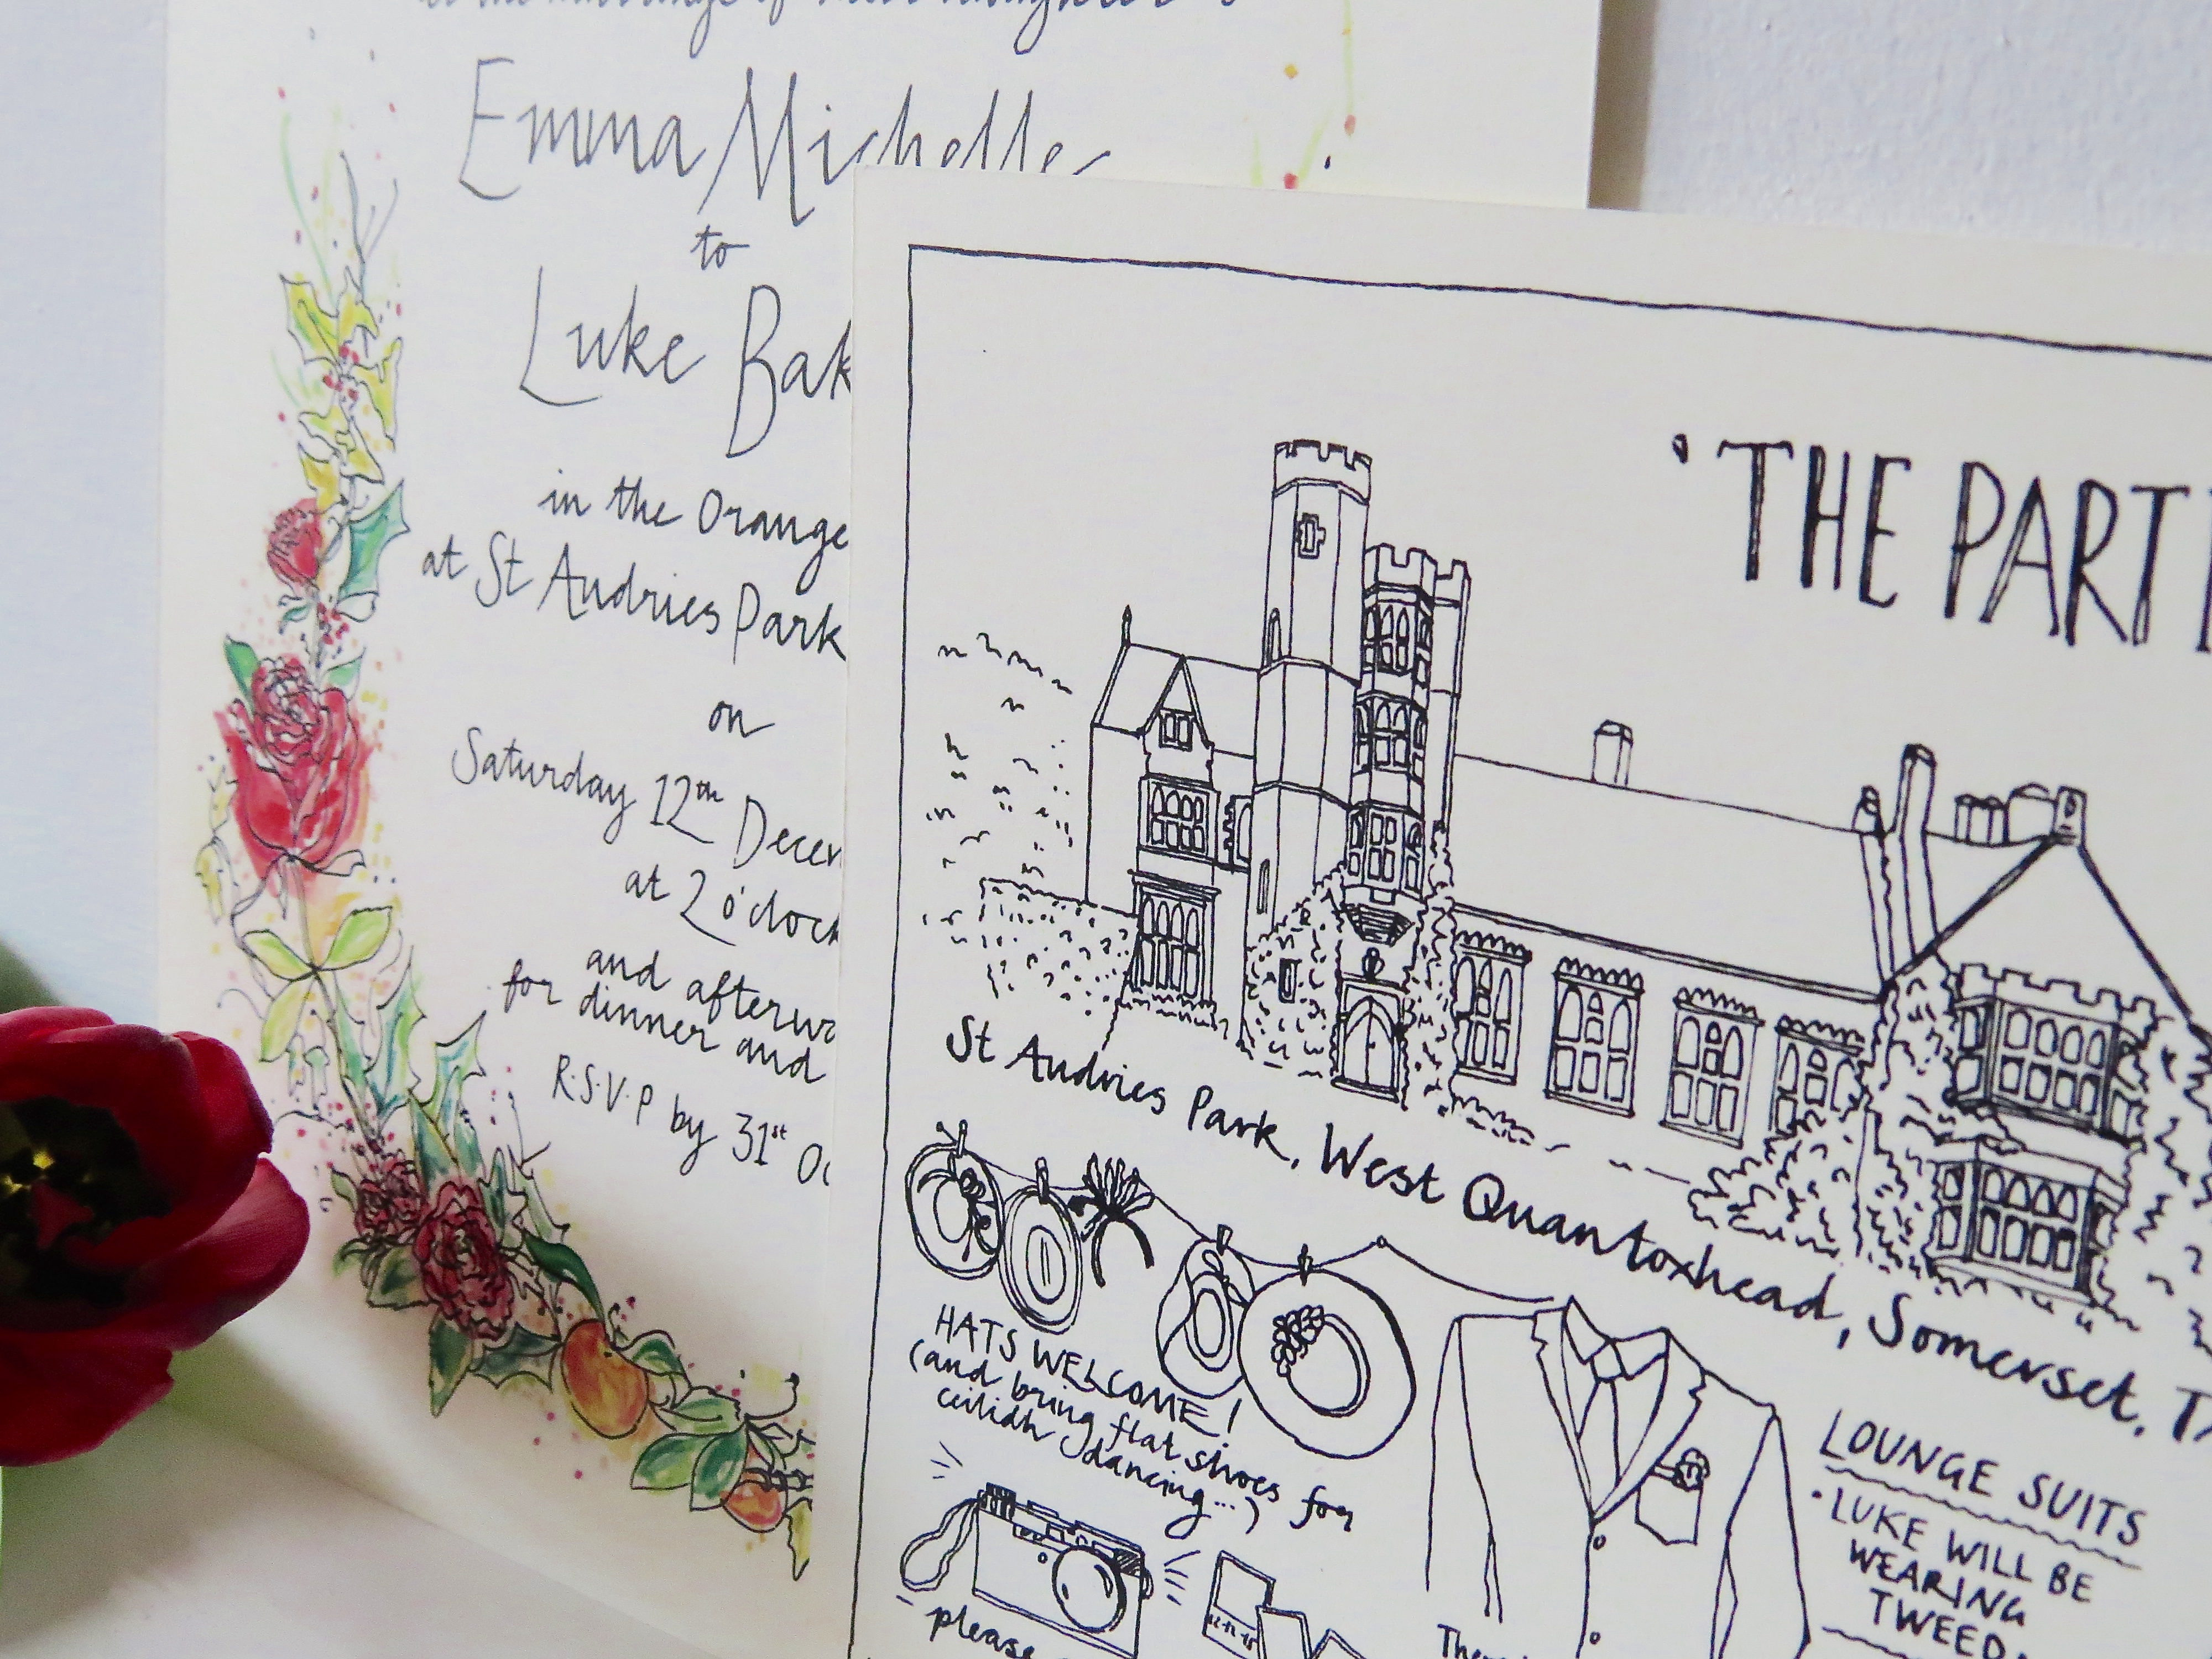 to the marriage of their daughter
Emma Michelle
to
Luke Bak
in the Orange
at St Audries Park
on
Saturday 12th Decem
at 2 o'clock
and afterwa
for dinner and
R.S.V.P by 31st Oc
'THE PART
St Audries Park, West Quantoxhead, Somerset, TA
HATS WELCOME!
(and bring flat shoes for
ceilidh dancing...)
LOUNGE SUITS
• LUKE WILL BE
WEARING
TWEED.
please
There